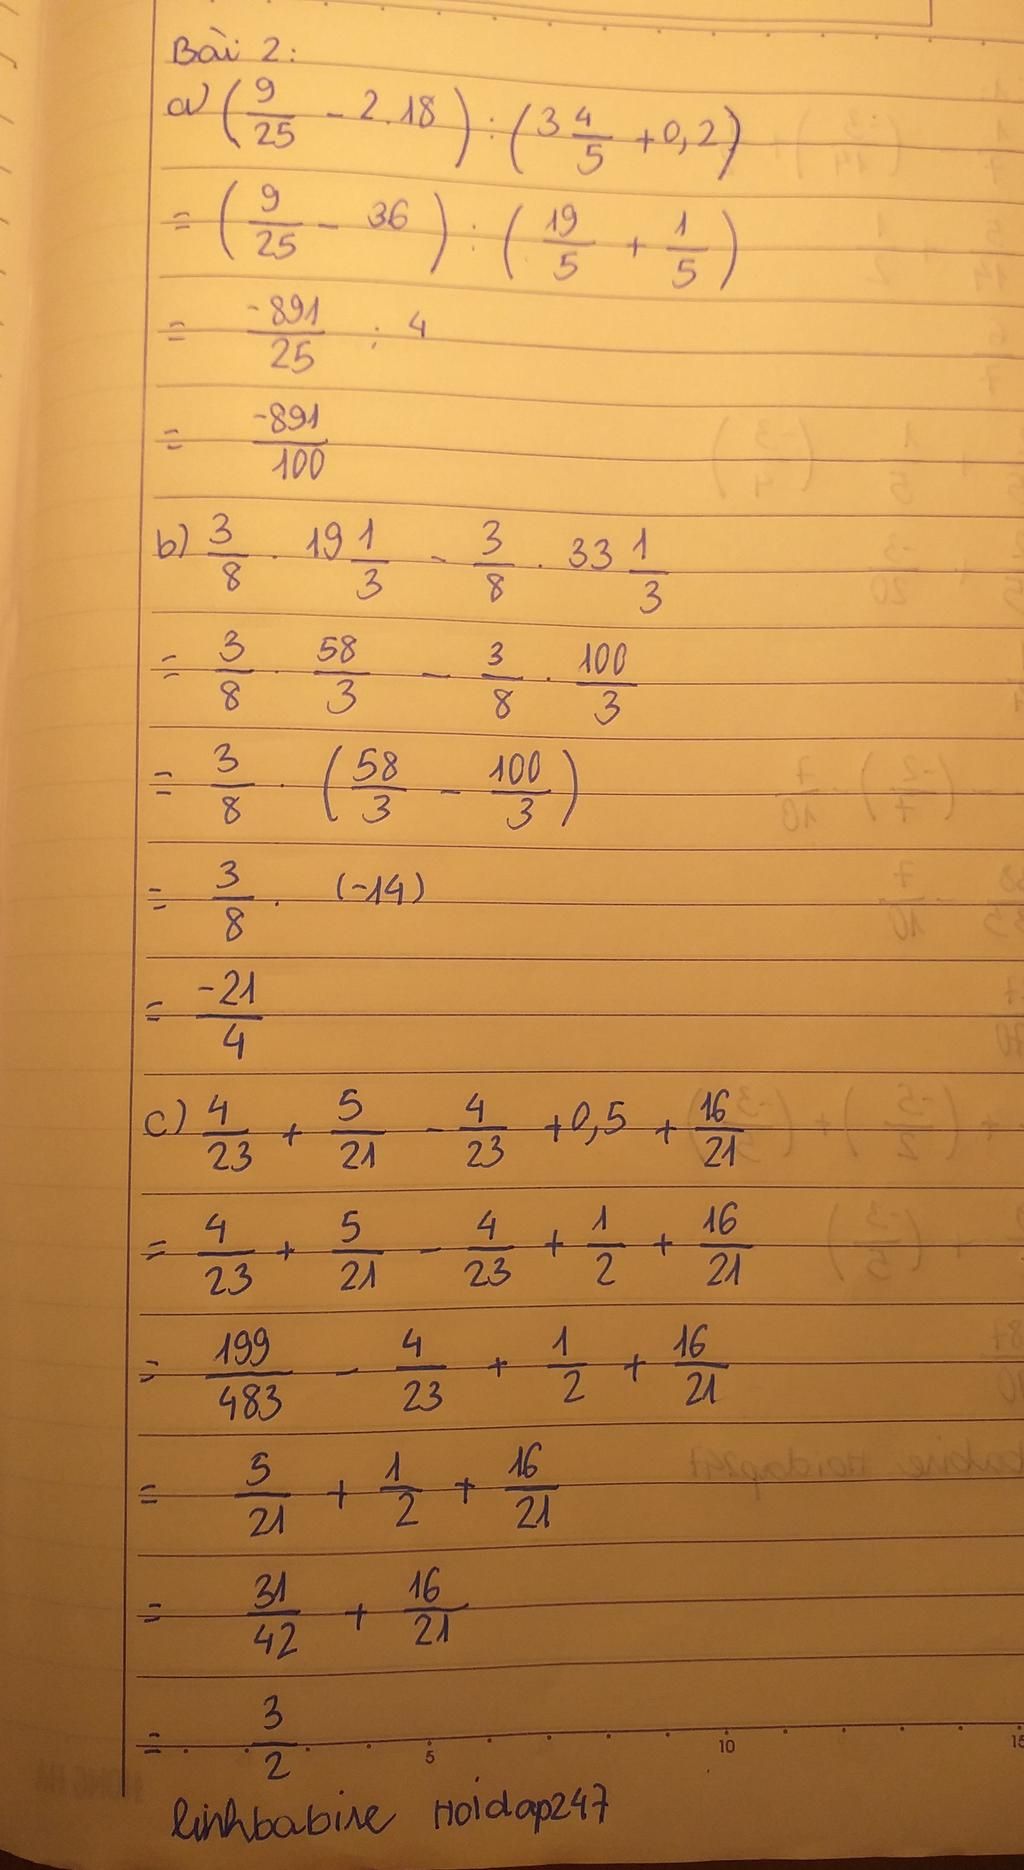 Bài 2:
a) (9/25 - 2.18) : (3 4/5 + 0,2)
= (9/25 - 36) : (19/5 + 1/5)
= -891/25 : 4
= -891/100
b) 3/8 . 19 1/3 - 3/8 . 33 1/3
= 3/8 . 58/3 - 3/8 . 100/3
= 3/8 . (58/3 - 100/3)
= 3/8 . (-14)
= -21/4
c) 4/23 + 5/21 - 4/23 + 0,5 + 16/21
= 4/23 + 5/21 - 4/23 + 1/2 + 16/21
= 199/483 - 4/23 + 1/2 + 16/21
= 5/21 + 1/2 + 16/21
= 31/42 + 16/21
= 3/2
5 10 15
linhbabire Hoidap247